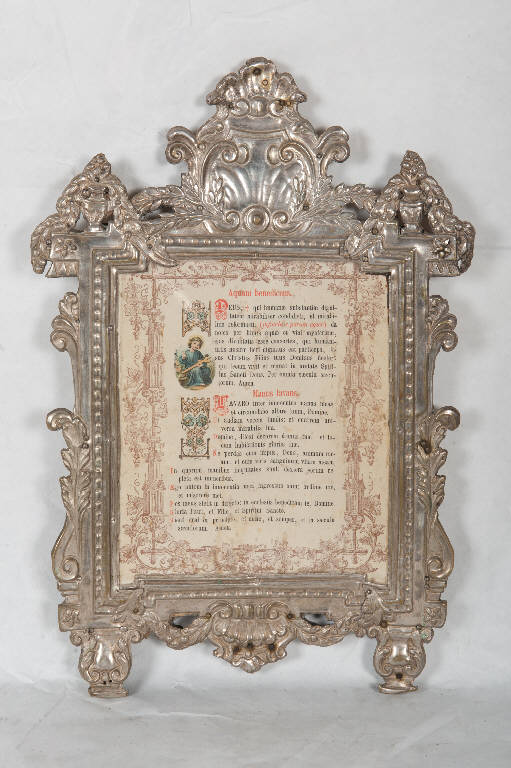 Aquam benedicens.
DEUS, qui humanae substantiae digni-
tatem mirabiliter condidisti, et mirabi-
lius reformasti, da
nobis per hujus aquae et vini mysterium,
ejus divinitatis esse consortes, qui humani-
tatis nostrae fieri dignatus est particeps, Je-
sus Christus Filius tuus Dominus noster:
qui tecum vivit et regnat in unitate Spiri-
tus Sancti Deus. Per omnia saecula saecu-
lorum. Amen.
Manus lavans.
LAVABO inter innocentes manus meas:
et circumdabo altare tuum, Domine.
Ut audiam vocem laudis: et enarrem uni-
versa mirabilia tua.
Domine, dilexi decorem domus tuae: et lo-
cum habitationis gloriae tuae.
Ne perdas cum impiis, Deus, animam me-
am: et cum viris sanguinum vitam meam.
In quorum manibus iniquitates sunt: dextera eorum re-
pleta est muneribus.
Ego autem in innocentia mea ingressus sum: redime me,
et miserere mei.
Pes meus stetit in directo: in ecclesiis benedicam te, Domine.
Gloria Patri, et Filio, et Spiritui Sancto.
Sicut erat in principio, et nunc, et semper, et in saecula
saeculorum. Amen.